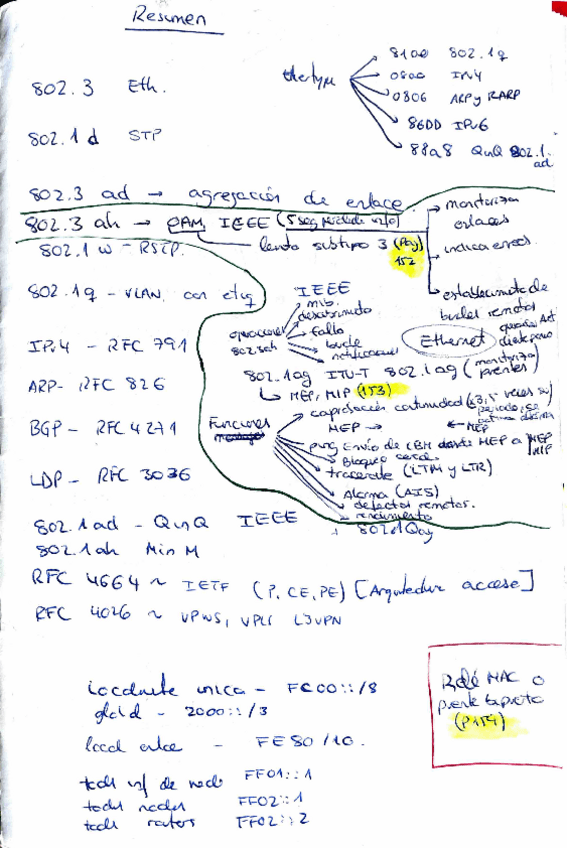 Resumen
802.3 Eth.
802.1d STP
802.3 ad → agregación de enlace
802.3 ah → OAM, IEEE (5 seg perdida info)
lento subtipo 3 (Pag 152)
802.1w - RSTP.
802.1q - VLAN, con etiq
IPv4 - RFC 791
ARP - RFC 826
BGP - RFC 4271
LDP - RFC 3036
802.1ad - QinQ IEEE
802.1ah MinM
RFC 4664 ~ IETF (P, CE, PE) [Arquitectura acceso]
RFC 4026 ~ VPWS, VPLS L3VPN
ethertype
8100 802.1q
0800 IPv4
0806 ARP y RARP
86DD IPv6
88a8 QinQ 802.1ad
monitorizan
enlaces
indica errores
establecimiento de
bucles remotos
Ethernet
IEEE
operaciones
802.3ah
mib.
descubrimiento
fallo
bucle
notificaciones
802.1ag ITU-T 802.1ag (monitoriza
puentes)
MEP, MIP (153)
Funciones
comprobación continuidad (3,5 veces su
periodo, se
MEP → ← MEP
ping Envío de LBM desde MEP a MEP
MIP
Bloqueo
traceroute (LTM y LTR)
Alarma (AIS)
defectos remotos.
rendimiento
+ 802.1Qay
local unica - FC00::/8
global - 2000::/3
local enlace - FE80/10.
todos inf de nodo FF01::1
todos nodos FF02::1
todos routers FF02::2
Relé MAC o
puente
(P154)